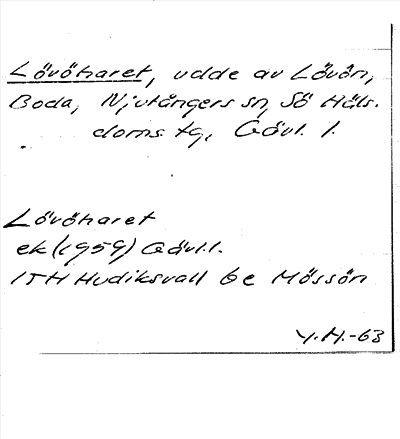 Lövöharet, udde av Lövön,
Boda, Njutångers sn, Sö Häls.
doms. tg, Gävl. l.
Lövöharet
ek (1959) Gävl.l.
15H Hudiksvall 6e Mössön
Y.H.-63